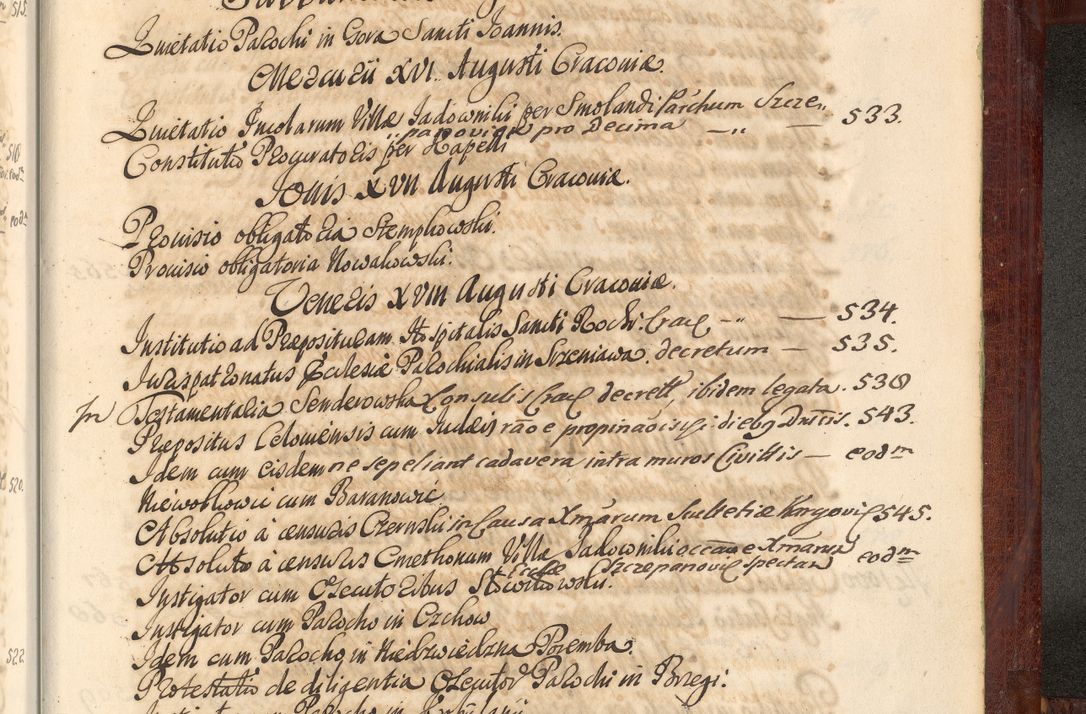 Quietatio Parochi in Gora Sancti Joannis.
Mercurii XVI. Augusti Cracoviæ.
Quietatio Incolarum Villæ Jadowniki per Smolandi Parchum Szcze„ 533.
„panoviae pro Decima —„—
Constitutio Procuratoris per Kapelli
Jovis XVII Augusti Cracoviæ.
Provisio obligatoria Stempkowski.
Provisio obligatoria Nowakowski.
Veneris XVIII Augusti Cracoviæ.
Institutio ad Præposituram Hospitalis Sancti Rochi. Crac —„— 534.
Jurispatronatus Ecclesiæ Parochialis in Szreniawa decretum — 535.
Testamentalia Senderowska Consulis Crac decrett, ibidem legata. 538
Præpositus Celoviensis cum Judæis rãoe propinãois diebg Dnicis. 543.
Idem cum eisdem ne sepeliant cadavera intra muros Civittis — eodm
Niewolkowic cum Baranowic
Absolutio à censuris Czernski in Causa Xmãrum Scultetiæ 545.
Absolutio à censuris Cmethonum Villæ Jadowniki occãoe Xmarum eodm
Ecclæ Szczepanovic spectan
Instigator cum Executoribus
Instigator cum Parocho in Czchow
Idem cum Parocho in Niedzwiedzna Poremba.
Protestatio de diligentia Executor Parochi in Brzegi.
cum Parocho in
515.
516
eodm
520.
522